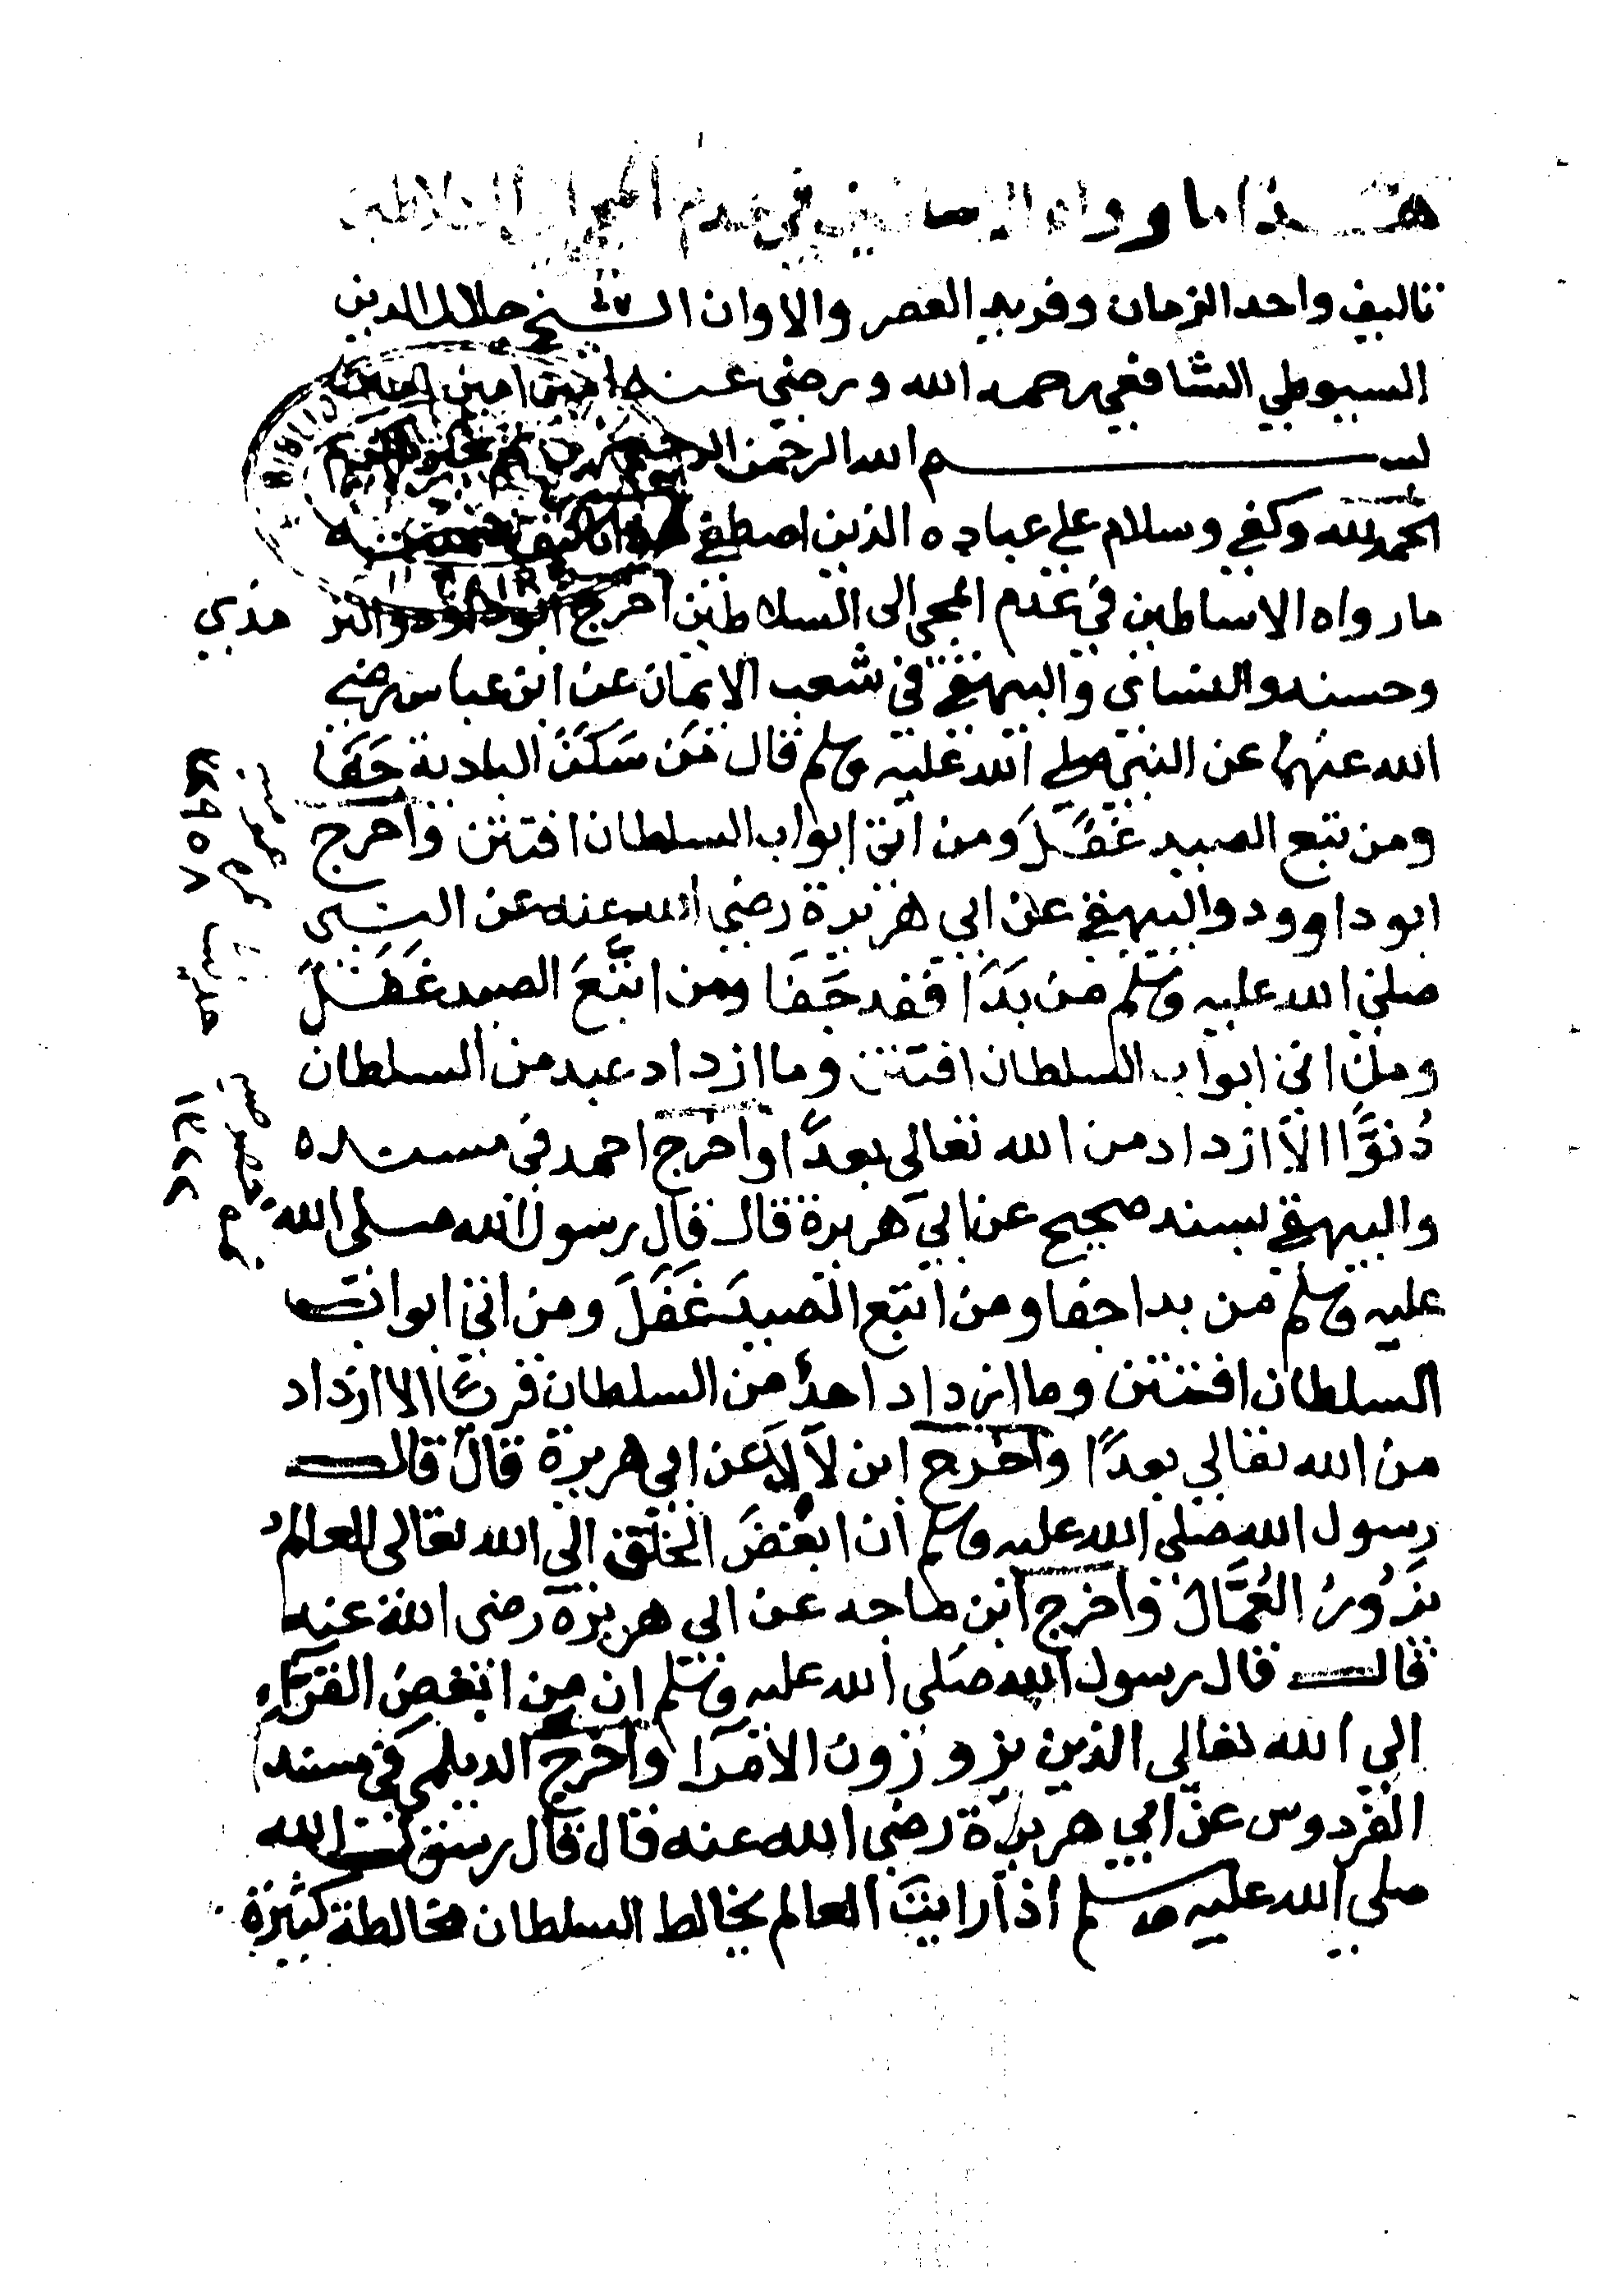 هذا ما رواه الاساطين في عدم المجئ الى السلاطين
تاليف واحد الزمان وفريد العصر والاوان الشيخ جلال الدين
السيوطي الشافعي رحمه الله ورضي عنه امين امين امين
بسم الله الرحمن الرحيم
الحمد لله وكفى وسلام على عباده الذين اصطفى هذا تاليف سميته
ما رواه الاساطين في عدم المجي الى السلاطين اخرج ابو داوود والترمذي
وحسنه والنساى والبيهقي في شعب الايمان عن ابن عباس رضي
الله عنهما عن النبي صلى الله عليه وسلم قال مَن سَكَنَ البادية جَفَا
ومن تتبع الصيد غَفَلَ ومن اتى ابواب السلطان افتتن واخرج
ابو داوود والبيهقي عن ابي هريرة رضي الله عنه عن النبى
صلى الله عليه وسلم من بَدَا فقد جَفَا ومن اتبَّعَ الصيد غَفَلَ
ومن اتى ابواب السلطان افتتن وما ازداد عبد من السلطان
دُنوًّا الاّ ازداد من الله تعالى بعدًا واخرج احمد في مسنده
والبيهقي بسند صحيح عن ابي هريرة قال قال رسول الله صلى الله
عليه وسلم من بدا جفا ومن اتبع الصيدَ غَفَلَ ومن اتى ابواب
السلطان افتتن وما ازداد احدٌ من السلطان قربًا الا ازداد
من الله تعالى بعدًا واخرج ابن لاَلاَ عن ابي هريرة قال قال
رسول الله صلى الله عليه وسلم ان ابغضَ الخلق الى الله تعالى العالمُ
يَزُورُ العُمَّالَ واخرج ابن ماجه عن ابي هريرة رضى الله عنه
قال قال رسول الله صلى الله عليه وسلم ان من ابغض القراءِ
الي الله تعالي الذين يزورون الامرا واخرج الديلمي في مسند
الفردوس عن ابي هريرة رضى الله عنه قال قال رسول الله
صلي الله عليه وسلم اذا رايتَ العالم يخالط السلطان مخالطة كثيرة
حديث